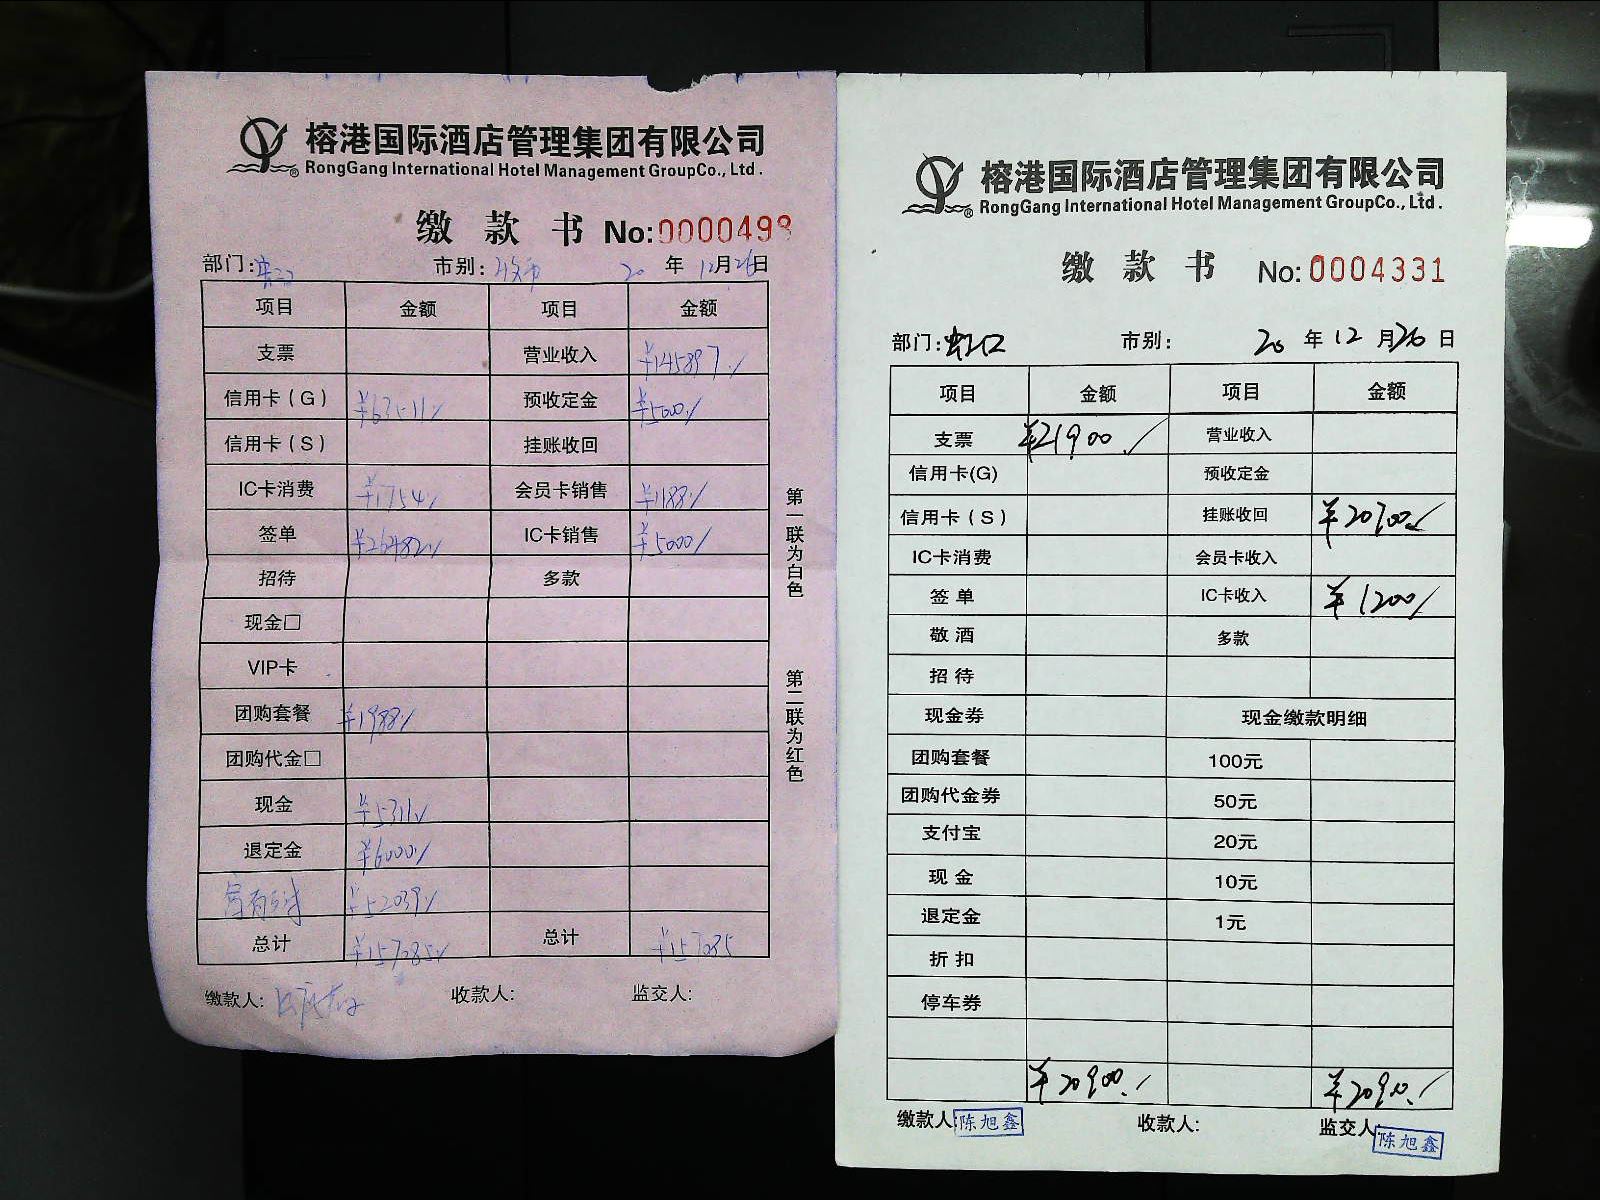 榕港国际酒店管理集团有限公司
RongGang International Hotel Management GroupCo., Ltd.
缴 款 书 No:0000498
部门: 市别: 20 年 12月26日
项目 金额 项目 金额
支票 营业收入 ¥145897/
信用卡(G) 预收定金 ¥5000/
信用卡(S) 挂账收回
IC卡消费 ¥1754/ 会员卡销售 ¥1188/
签单 ¥26482/ IC卡销售 ¥5000/
招待 多款
现金□
VIP卡
团购套餐 ¥1988/
团购代金□
现金 ¥5311/
退定金 ¥6000/
¥52039/
总计 ¥157085/ 总计 ¥157085
缴款人: 收款人: 监交人:
第一联为白色
第二联为红色
榕港国际酒店管理集团有限公司
RongGang International Hotel Management GroupCo., Ltd.
缴 款 书 No: 0004331
部门:虹口 市别: 20 年 12 月 26 日
项目 金额 项目 金额
支票 ¥21900./ 营业收入
信用卡(G) 预收定金
信用卡(S) 挂账收回 ¥20700./
IC卡消费 会员卡收入
签 单 IC卡收入 ¥1200/
敬 酒 多款
招 待
现金券 现金缴款明细
团购套餐 100元
团购代金券 50元
支付宝 20元
现 金 10元
退定金 1元
折 扣
停车券
¥20900./ ¥20900./
缴款人:陈旭鑫 收款人: 监交人:陈旭鑫